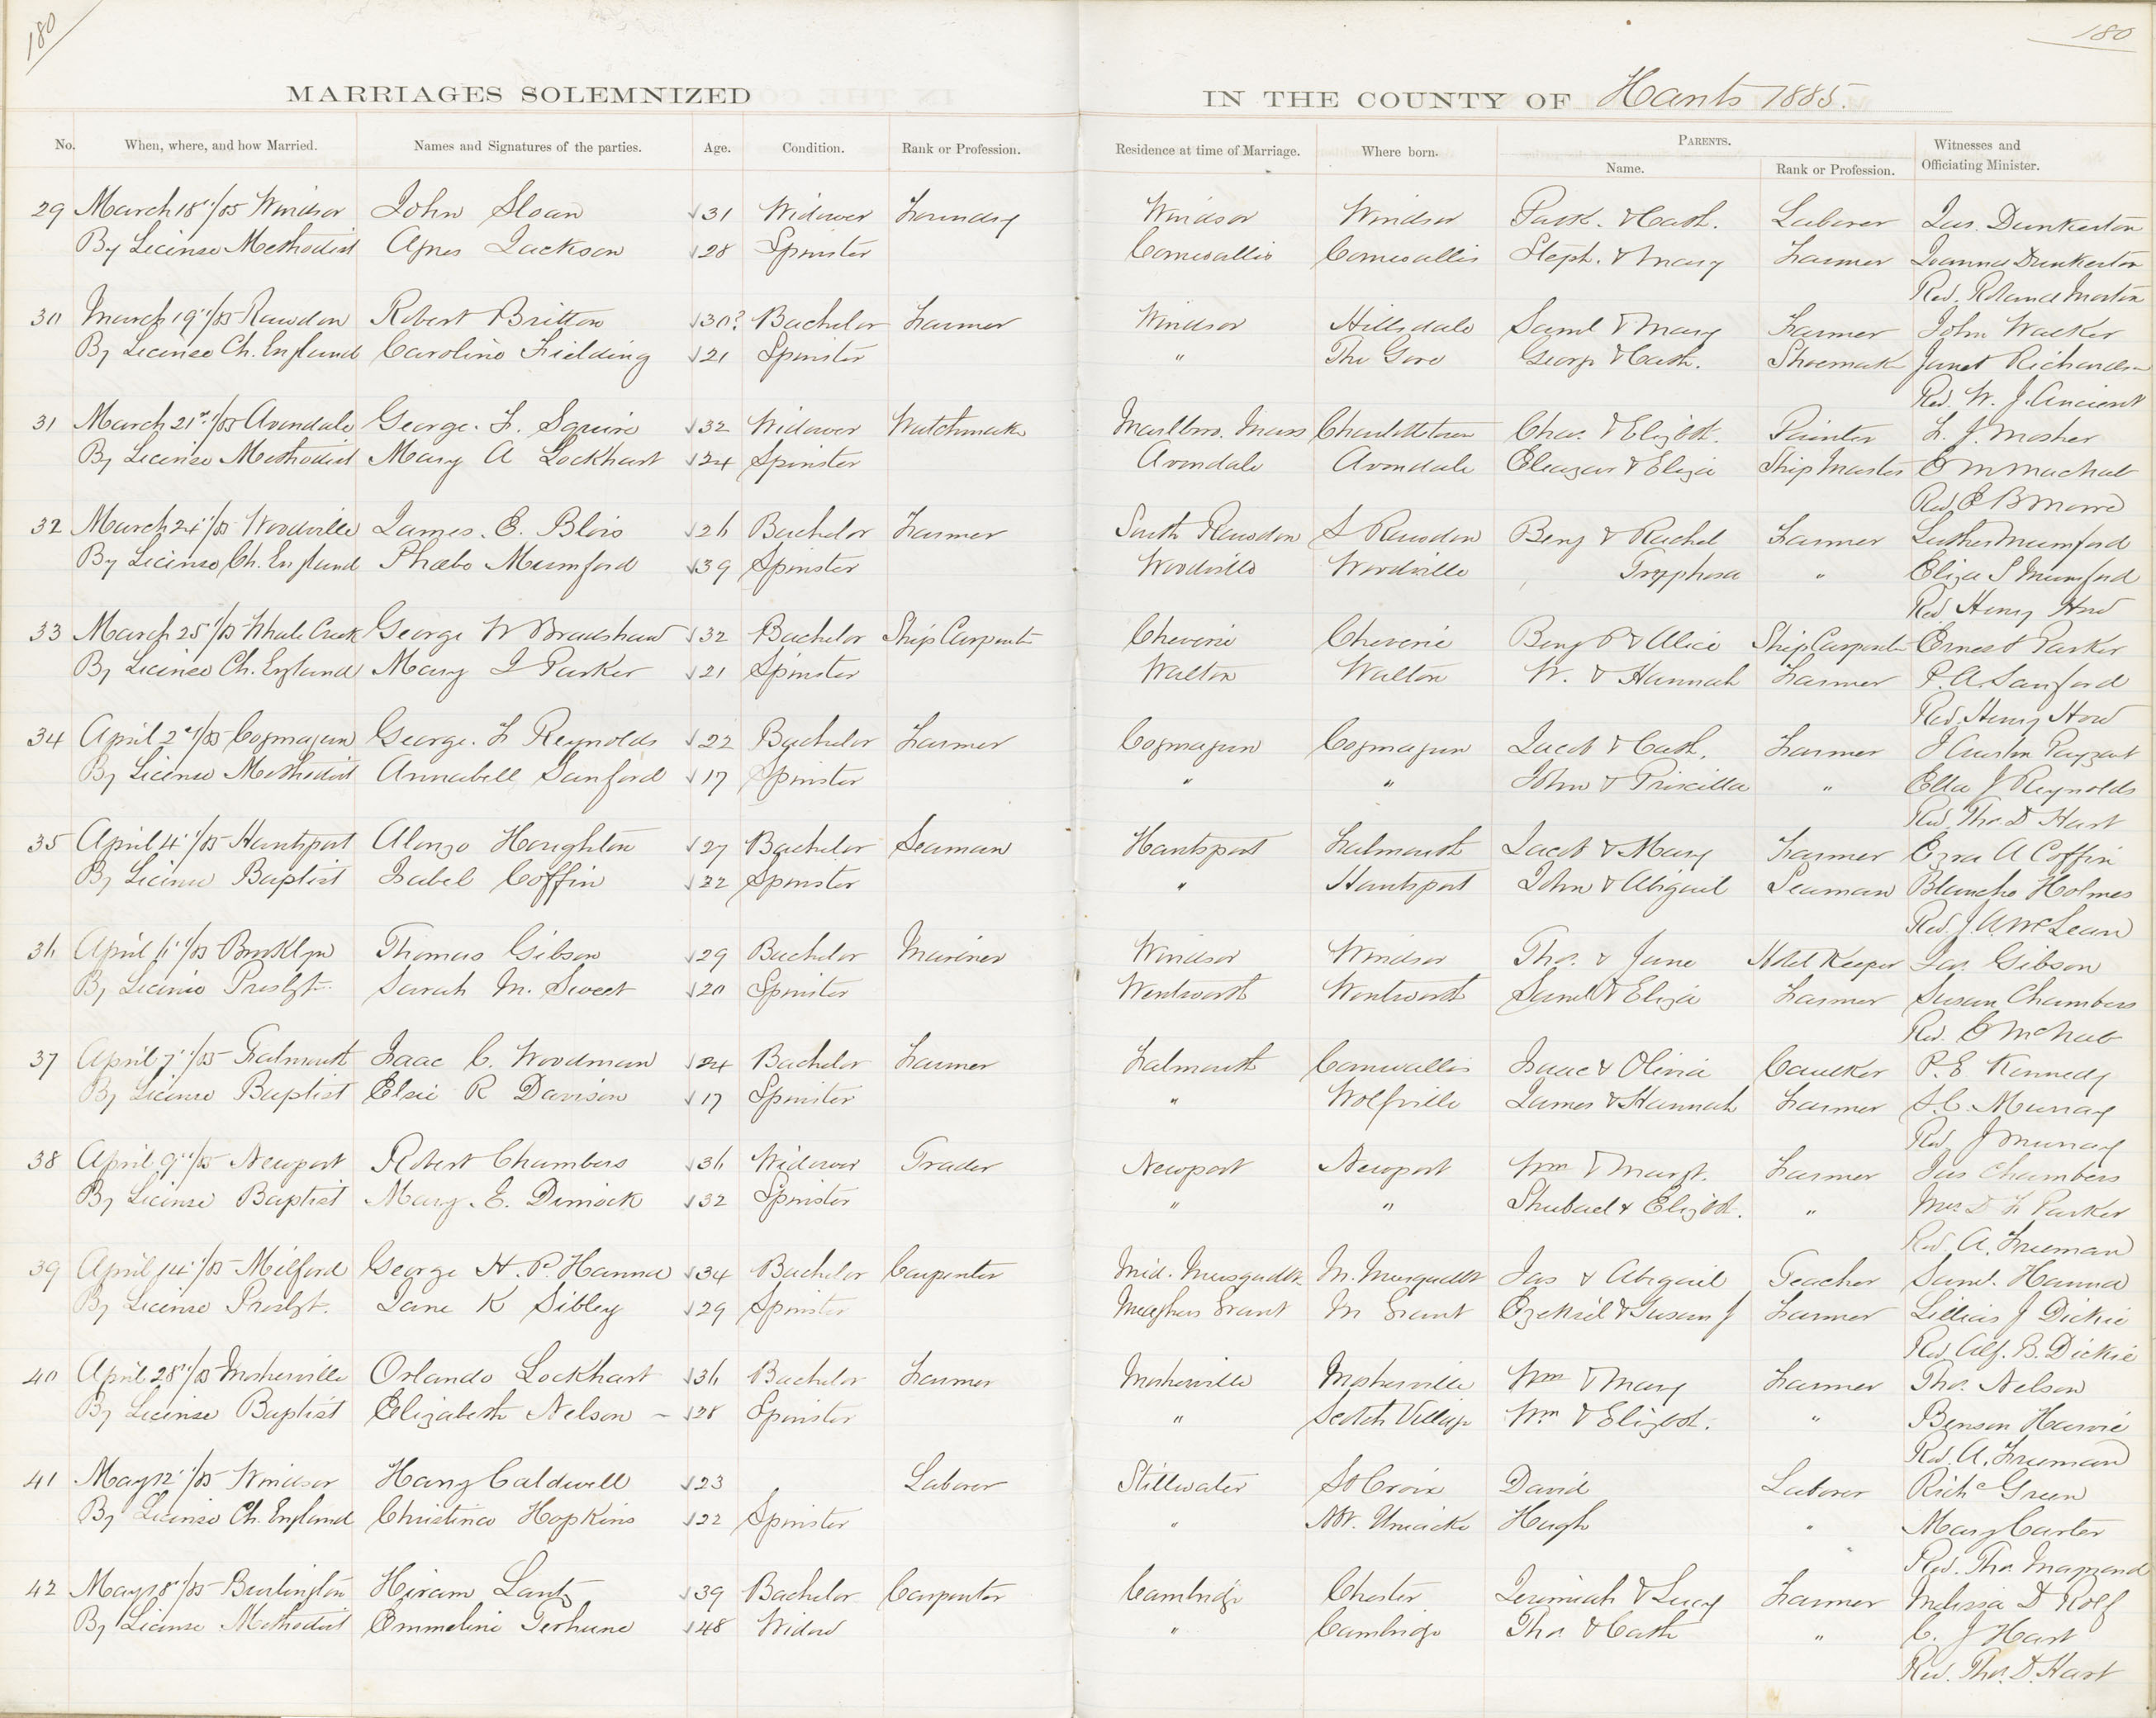 180
180
MARRIAGES SOLEMNIZED IN THE COUNTY OF Hants 1885.
No. When, where, and how Married. Names and Signatures of the parties. Age. Condition. Rank or Profession. Residence at time of Marriage. Where born. PARENTS. Name. Rank or Profession. Witnesses and Officiating Minister.
29 March 18"/85 Windsor John Sloan 31 Widower Windsor Windsor & Cath. Laborer Jas. Dunkerton
By License Methodist Agnes Jackson 28 Spinster Cornwallis Cornwallis Steph. & Mary Farmer Joanna Dunkerton
Rev. Roland Morton
30 March 19"/85 Rawdon Robert Britton 30? Bachelor Farmer Windsor Hillsdale Saml & Mary Farmer John Walker
By License Ch. England Caroline Fielding 21 Spinster " The Gore George & Cath. Shoemaker Janet Richardson
Rev. W. J. Ancient
31 March 21st/85 Avondale George. F. Squire 32 Widower Watchmaker Marlbro. Mass Charlottetown Chas. & Elizbth. Painter F. J. Mosher
By License Methodist Mary A Lockhart 24 Spinster Avondale Avondale Eleazar & Eliza Ship Master
Rev. E B Moore
32 March 24"/85 Woodville James. E. Blois 26 Bachelor Farmer South Rawdon S Rawdon Benj & Rachel Farmer Luther Mumford
By License Ch. England Phoebe Mumford 39 Spinster Woodville Woodville Tryphosa " Eliza S Mumford
Rev. Henry How
33 March 25"/85 Whale Creek George W Bradshaw 32 Bachelor Ship Carpenter Cheverie Cheverie Benj P & Alice Ship Carpenter Ernest Parker
By License Ch. England Mary J Parker 21 Spinster Walton Walton W. & Hannah Farmer P. A. Sanford
Rev. Henry How
34 April 2nd/85 Cogmagun George. F Reynolds 22 Bachelor Farmer Cogmagun Cogmagun Jacob & Cath. Farmer J Austin Payzant
By License Methodist Annabell Sanford 17 Spinster " " John & Priscilla " Ella J Reynolds
Rev. Tho. D Hart
35 April 4"/85 Hantsport Alonzo Houghton 27 Bachelor Seaman Hantsport Falmouth Jacob & Mary Farmer Ezra A Coffin
By License Baptist Isabel Coffin 22 Spinster " Hantsport John & Abigail Seaman Blanche Holmes
Rev. J. A. McLean
36 April 6"/85 Brooklyn Thomas Gibson 29 Bachelor Mariner Windsor Windsor Tho. & Jane Hotel Keeper Jas. Gibson
By License Presbyt. Sarah M. Sweet 20 Spinster Wentworth Wentworth Saml & Eliza Farmer Susan Chambers
Rev. E McNab
37 April 7"/85 Falmouth Isaac C. Woodman 24 Bachelor Farmer Falmouth Cornwallis Isaac & Olivia Caulker P. E Kennedy
By License Baptist Elsie R Davison 17 Spinster " Wolfville James & Hannah Farmer S. C. Murray
Rev. J Murray
38 April 9"/85 Newport Robert Chambers 36 Widower Trader Newport Newport Wm & Margt. Farmer Jas Chambers
By License Baptist Mary. E. Dimock 32 Spinster " " Shubael & Elizbth. " Mrs D F Parker
Rev. A. Freeman
39 April 14"/85 Milford George H. P. Hanna 34 Bachelor Carpenter Mid. Musquodbt. M. Musquodbt Jas & Abigail Teacher Saml. Hanna
By License Presbyt. Jane K Sibley 29 Spinster Meaghers Grant M Grant Ezekiel & Susan J Farmer Lillias J Dickie
Rev. Alf. B. Dickie
40 April 28"/85 Mosherville Orlando Lockhart 36 Bachelor Farmer Mosherville Mosherville Wm & Mary Farmer Tho. Nelson
By License Baptist Elizabeth Nelson – 28 Spinster " Scotch Village Wm & Elizbth. " Benson Harvie
Rev. A. Freeman
41 May 12"/85 Windsor Harry Caldwell 23 Laborer Stillwater St Croix David Laborer Richd Green
By License Ch. England Christina Hopkins 22 Spinster " Mt. Uniacke Hugh " Mary Carter
Rev. Tho. Maynard
42 May 18"/85 Burlington Hiram Lantz 39 Bachelor Carpenter Cambridge Chester Jeremiah & Lucy Farmer Melissa D Rolf
By License Methodist Emmeline Terhune 48 Widow " Cambridge Tho. & Cath " C. J Hart
Rev. Tho. D. Hart